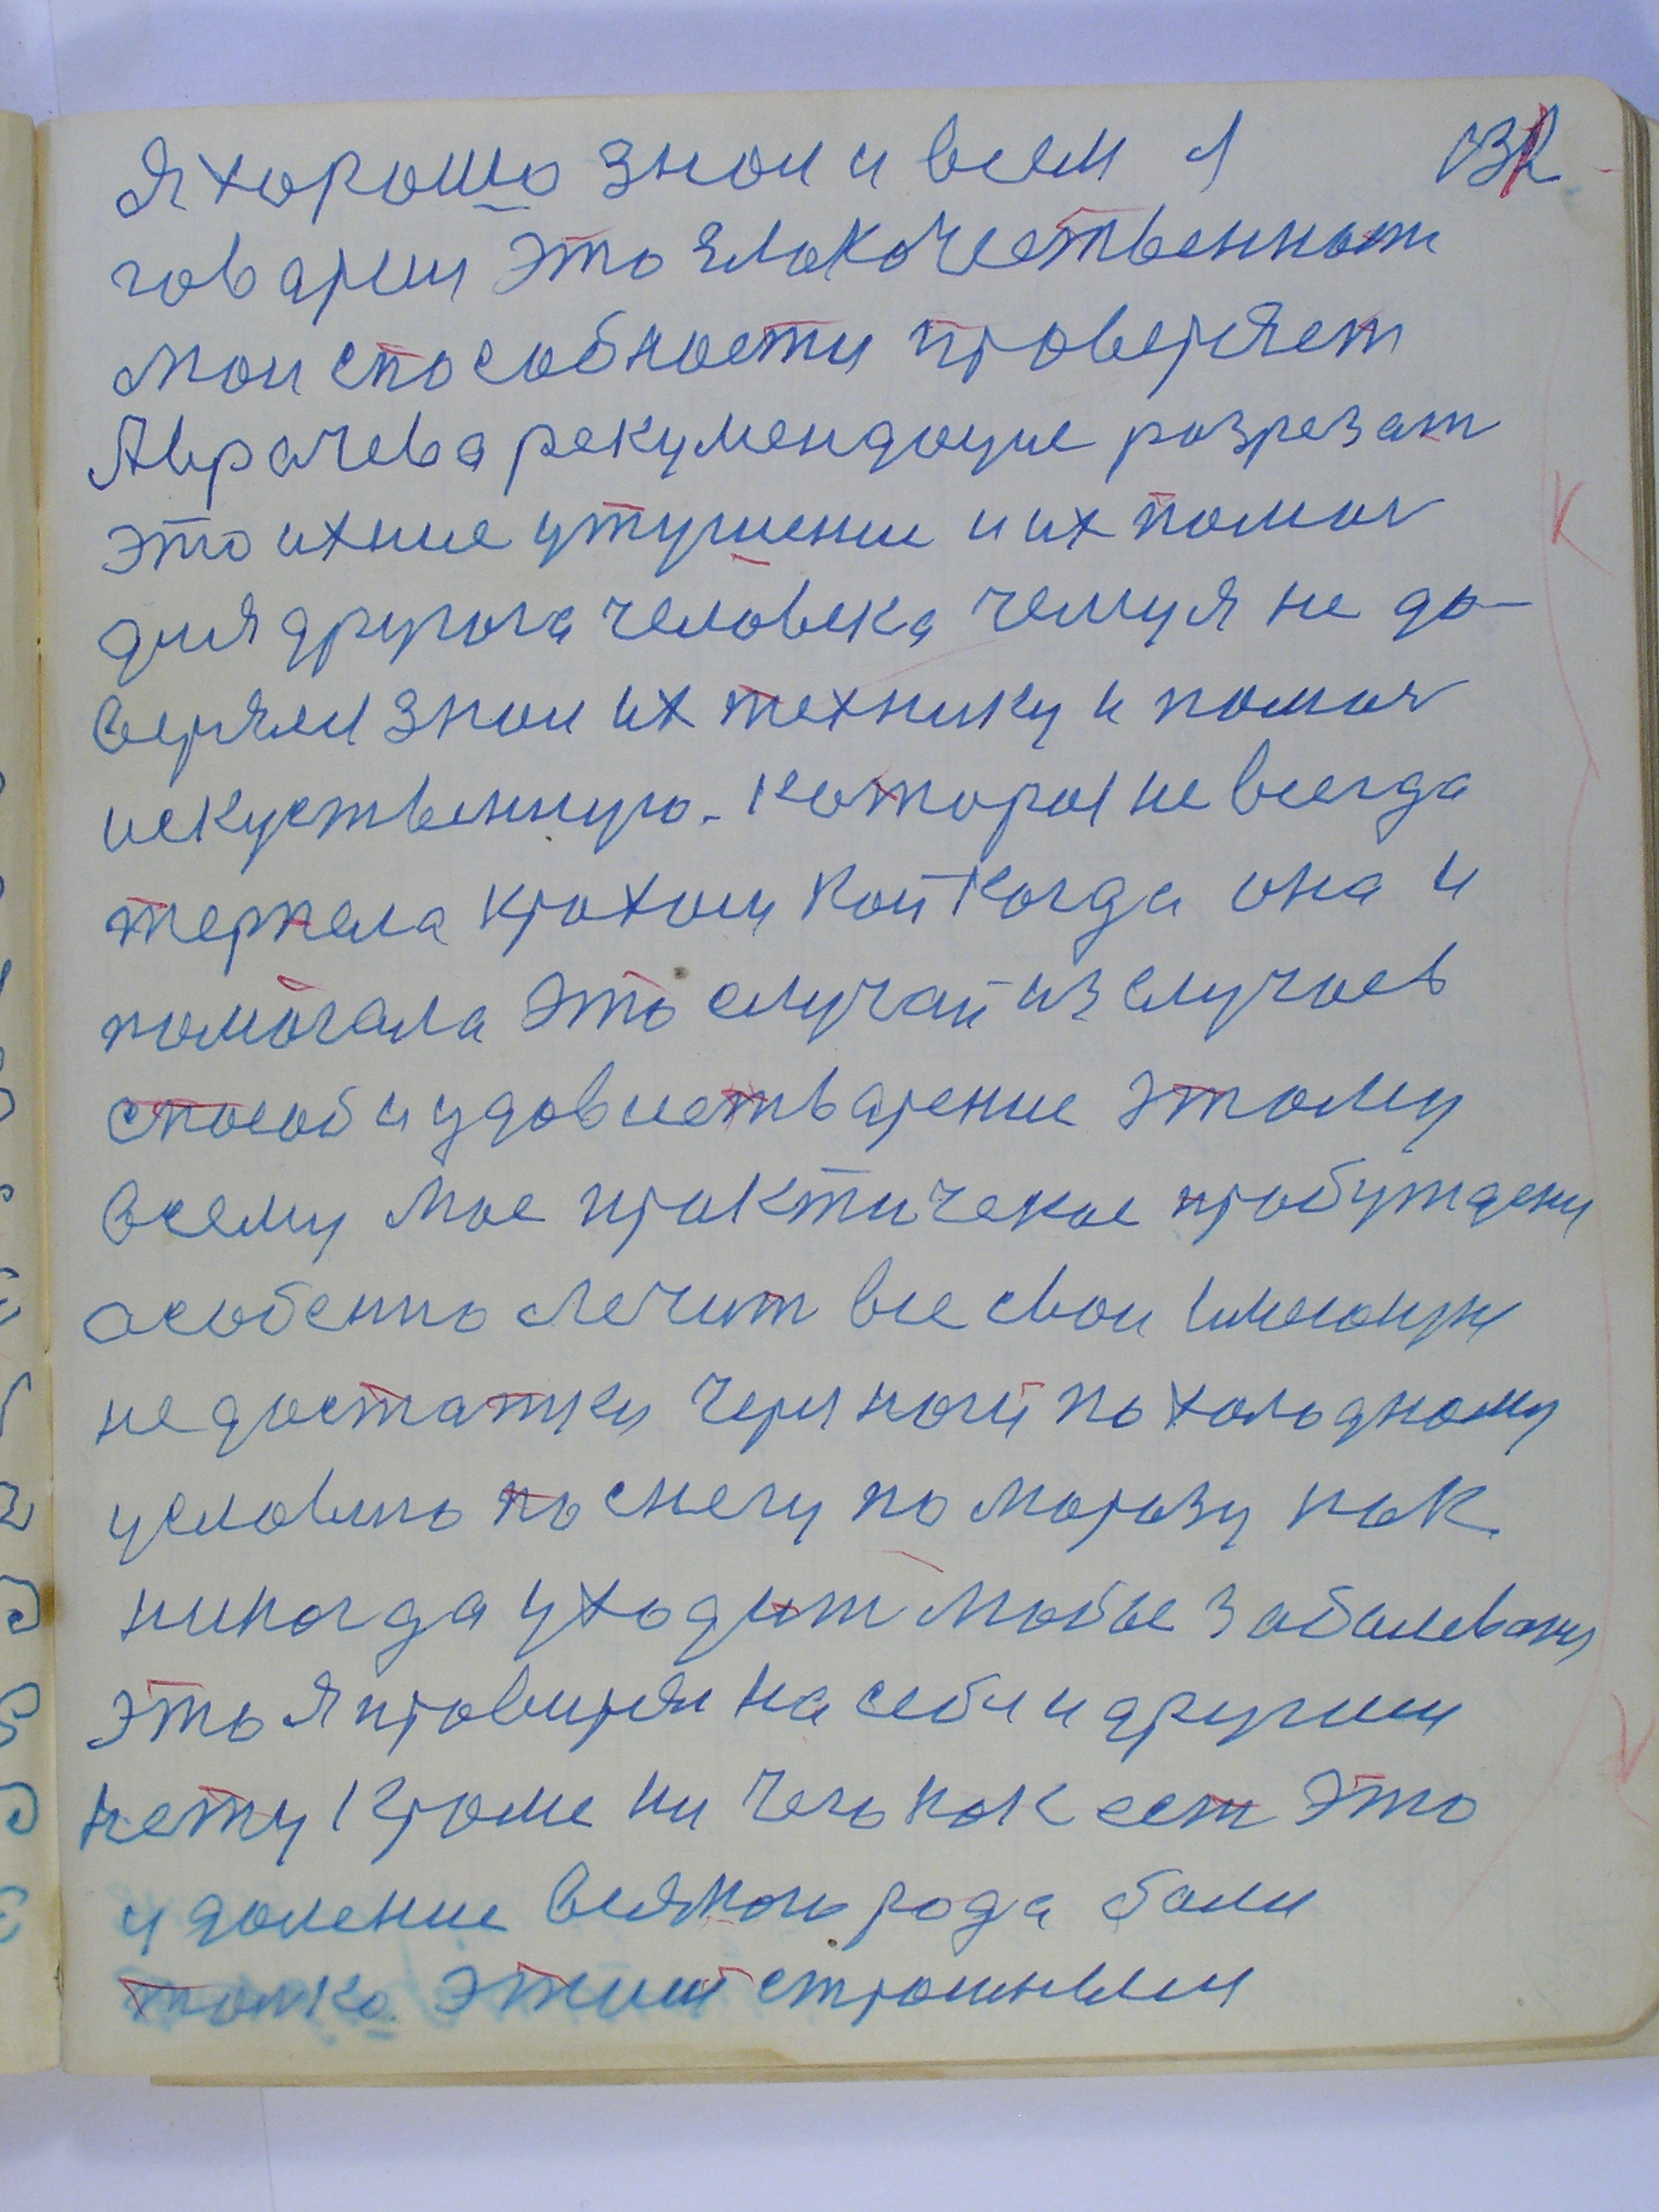 Я хорошо знаю и всем 1 132
говарил это злокочественност
мои способности проверяет
А врачева рекумендоцие розрезат
это ихние утушение и их помоч
для другога человека чему я не до-
веряли знои их технику и помоч
искуственную. Которы не всегда
терпела крохом кой когда она и
помогала это случай из случоев
способ и удовлетварение этому
всему мое практическое пробуждени
особенно лечит все свои имеющи
недостатки через ноги по холодному
условию по снегу по морозу как
никогда уходит любые заболевани
это я проверял на себе и другим
нету кроме ни чего как ест это
удоление всякого рода боли
толко этими строшными